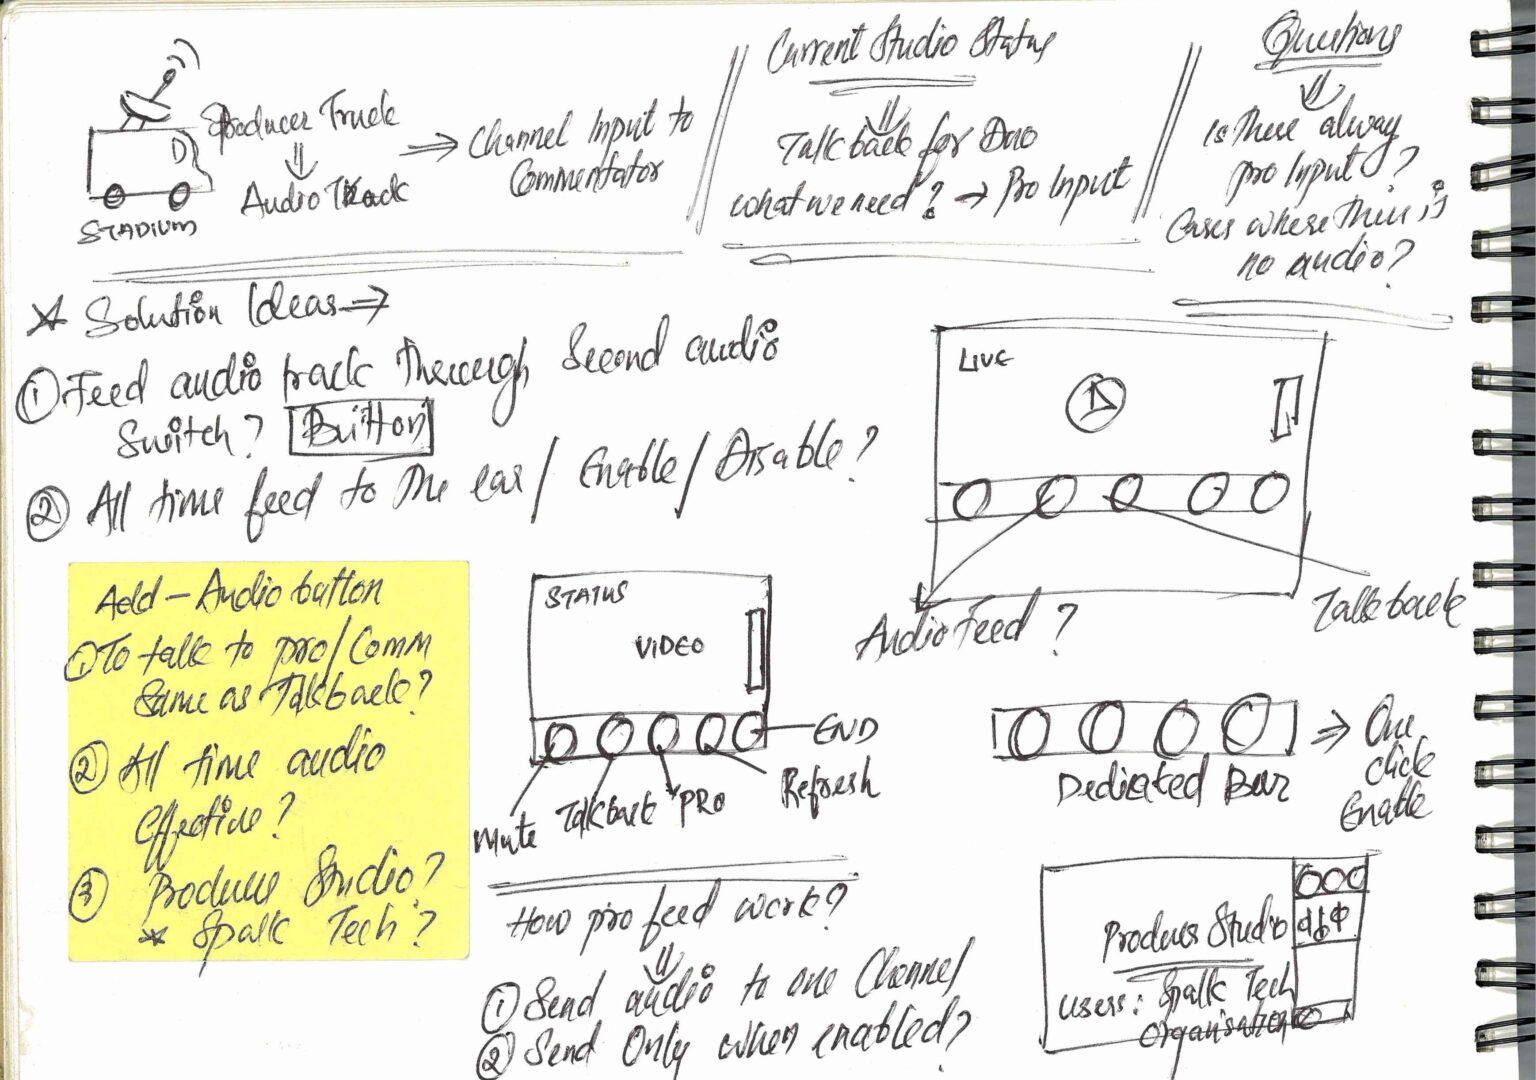 Producer Truck
Audio Track
STADIUM
Channel Input to
Commentator
Current Studio Status
Talkback for Duo
what we need? → Pro Input
Questions
Is there alway
pro Input?
Cases where there is
no audio?
Solution Ideas →
① Feed audio track through Second audio
Switch? Button
② All time feed to the ear / Enable / Disable?
LIVE
Audio Feed?
Talkback
Add - Audio button
① To talk to pro/Comm
Same as Talkback?
② All time audio
effective?
③ Producer Studio?
Spalk Tech?
STATUS
VIDEO
END
Refresh
PRO
Talkback
Mute
Dedicated Bar
One
Click
Enable
How pro feed work?
① Send audio to one Channel
② Send Only when enabled?
Producer Studio
Users: Spalk Tech
Organisation